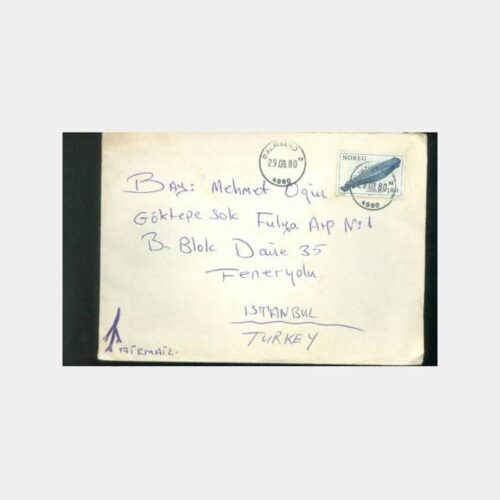 29.08.80
4980
NOREG
29.08.80
180
4980
BAY: Mehmet Oğur
Göktepe Sok Fulya Ap No:1
B. Blok Daire 35
Feneryolu
ISTANBUL
TURKEY
AIRMAIL